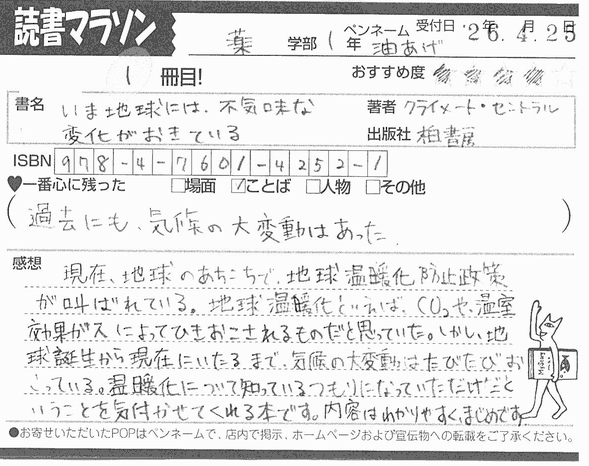 読書マラソン
薬 学部 1 年 ペンネーム 油あげ 受付日 '26年.4月.25日
1 冊目! おすすめ度
書名 いま地球には、不気味な 著者 クライメート・セントラル
変化がおきている 出版社 柏書房
ISBN 978-4-7601-4252-1
♥一番心に残った □場面 ☑ことば □人物 □その他
(過去にも、気候の大変動はあった.)
感想 現在、地球のあちこちで、地球温暖化防止政策
が叫ばれている。地球温暖化といえば、CO₂や、温室
効果ガスによってひきおこされるものだと思っていた。しかし、地
球誕生から現在にいたるまで、気候の大変動はたびたびお
こっている。温暖化について知っているつもりになっていただけだと
いうことを気付かせてくれる本です。内容はわかりやすく、まじめです
●お寄せいただいたPOPはペンネームで、店内で掲示、ホームページおよび宣伝物への転載をご了承ください。